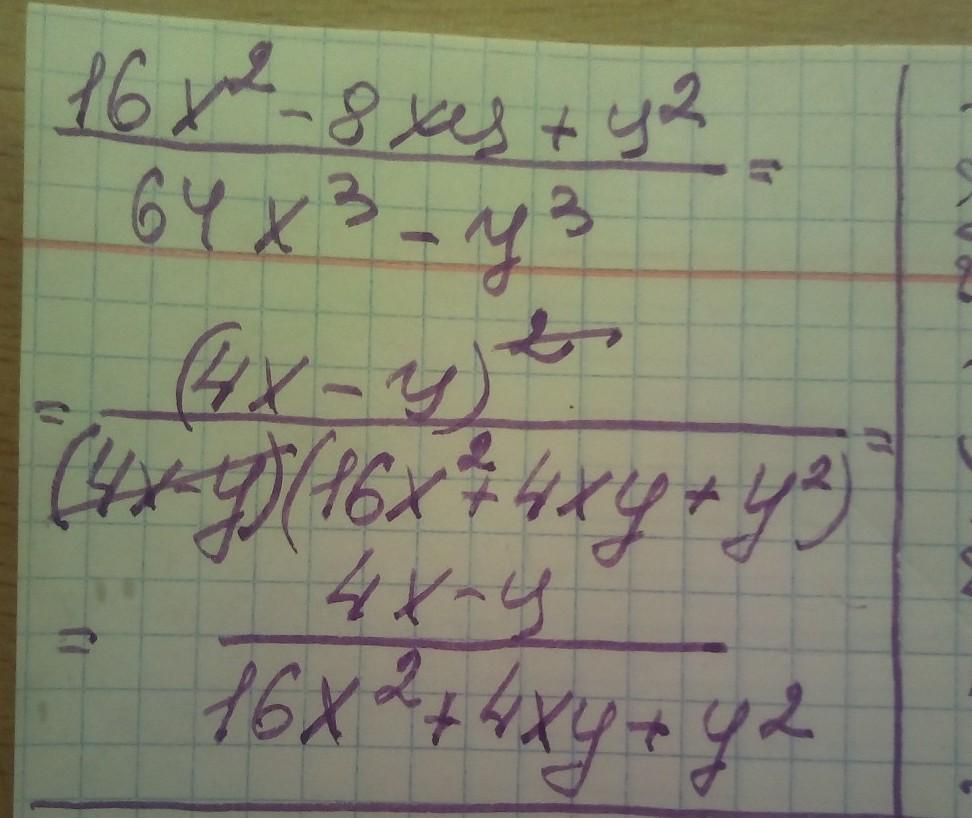 16x² - 8xy + y²
64x³ - y³ =
= (4x - y)²
(4x-y)(16x² + 4xy + y²) =
= 4x - y
16x² + 4xy + y²